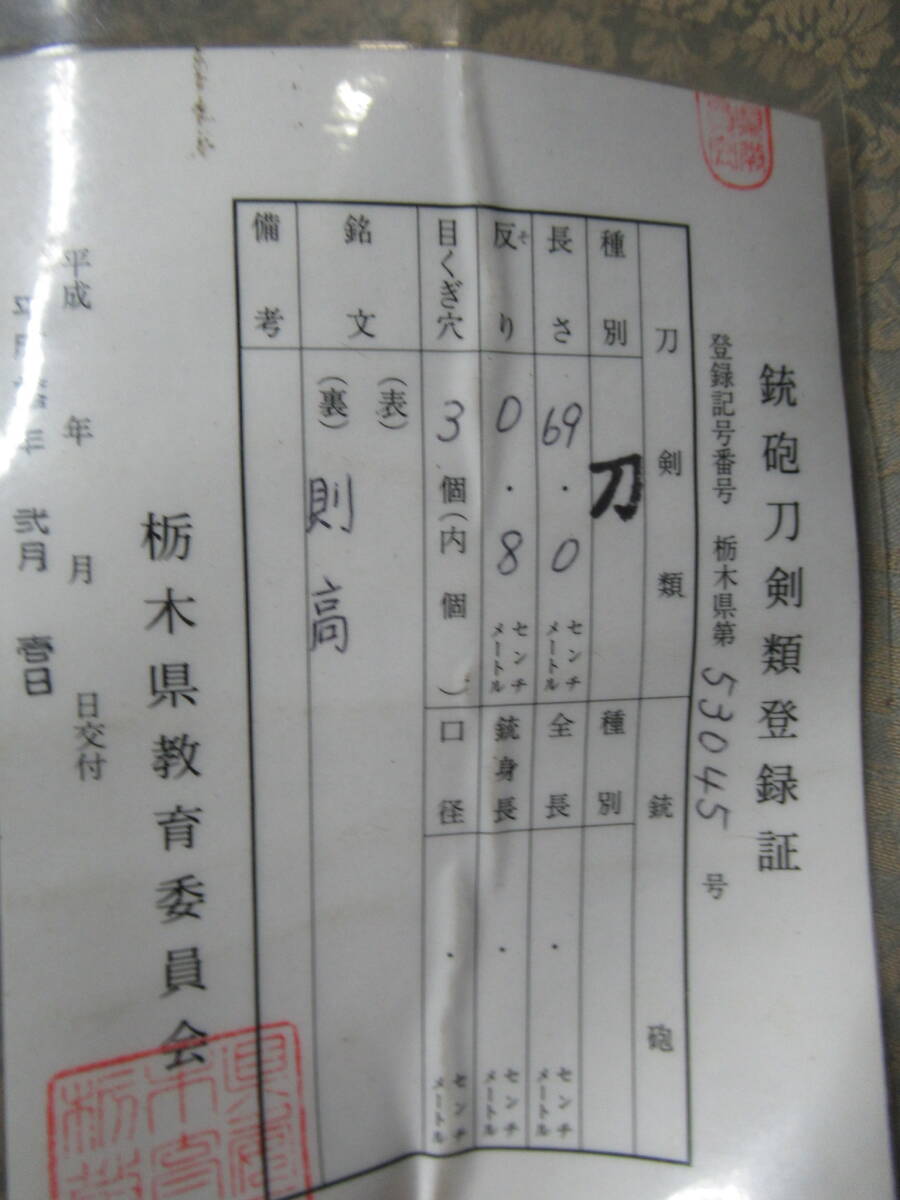 銃砲刀剣類登録証
登録記号番号 栃木県第 53045 号
刀剣類
種別 刀
長さ 69.0 センチメートル
反り そ 0.8 センチメートル
目くぎ穴 3個(内 個)
銘文 (表)
(裏) 則高
備考
銃砲
種別
全長 . センチメートル
銃身長 . センチメートル
口径 . センチメートル
平成 年 月 日交付
年 弐月 壱日
栃木県教育委員会